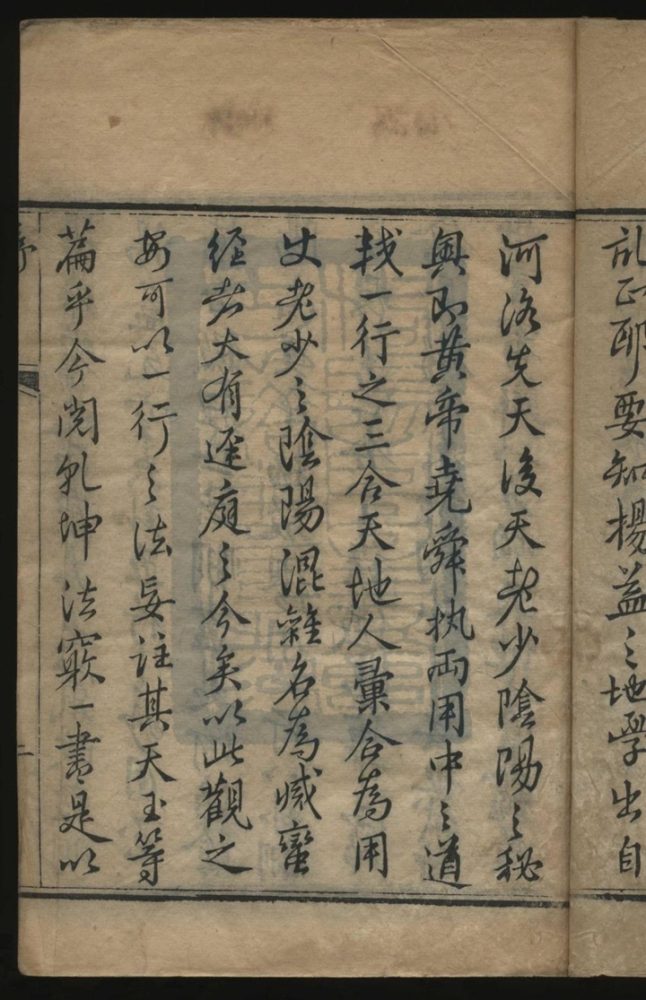 乱正耶要知楊益之地學出自
河洛先天後天老少陰陽之秘
奧即黃帝堯舜执兩用中之道
我一行之三合天地人彙合為用
丈老少之陰陽混雜名為滅蠻
經者大有逕庭之今矣以此觀之
安可以一行之法妄註其天玉等
篇乎今閱乹坤法竅一書是以
序
二